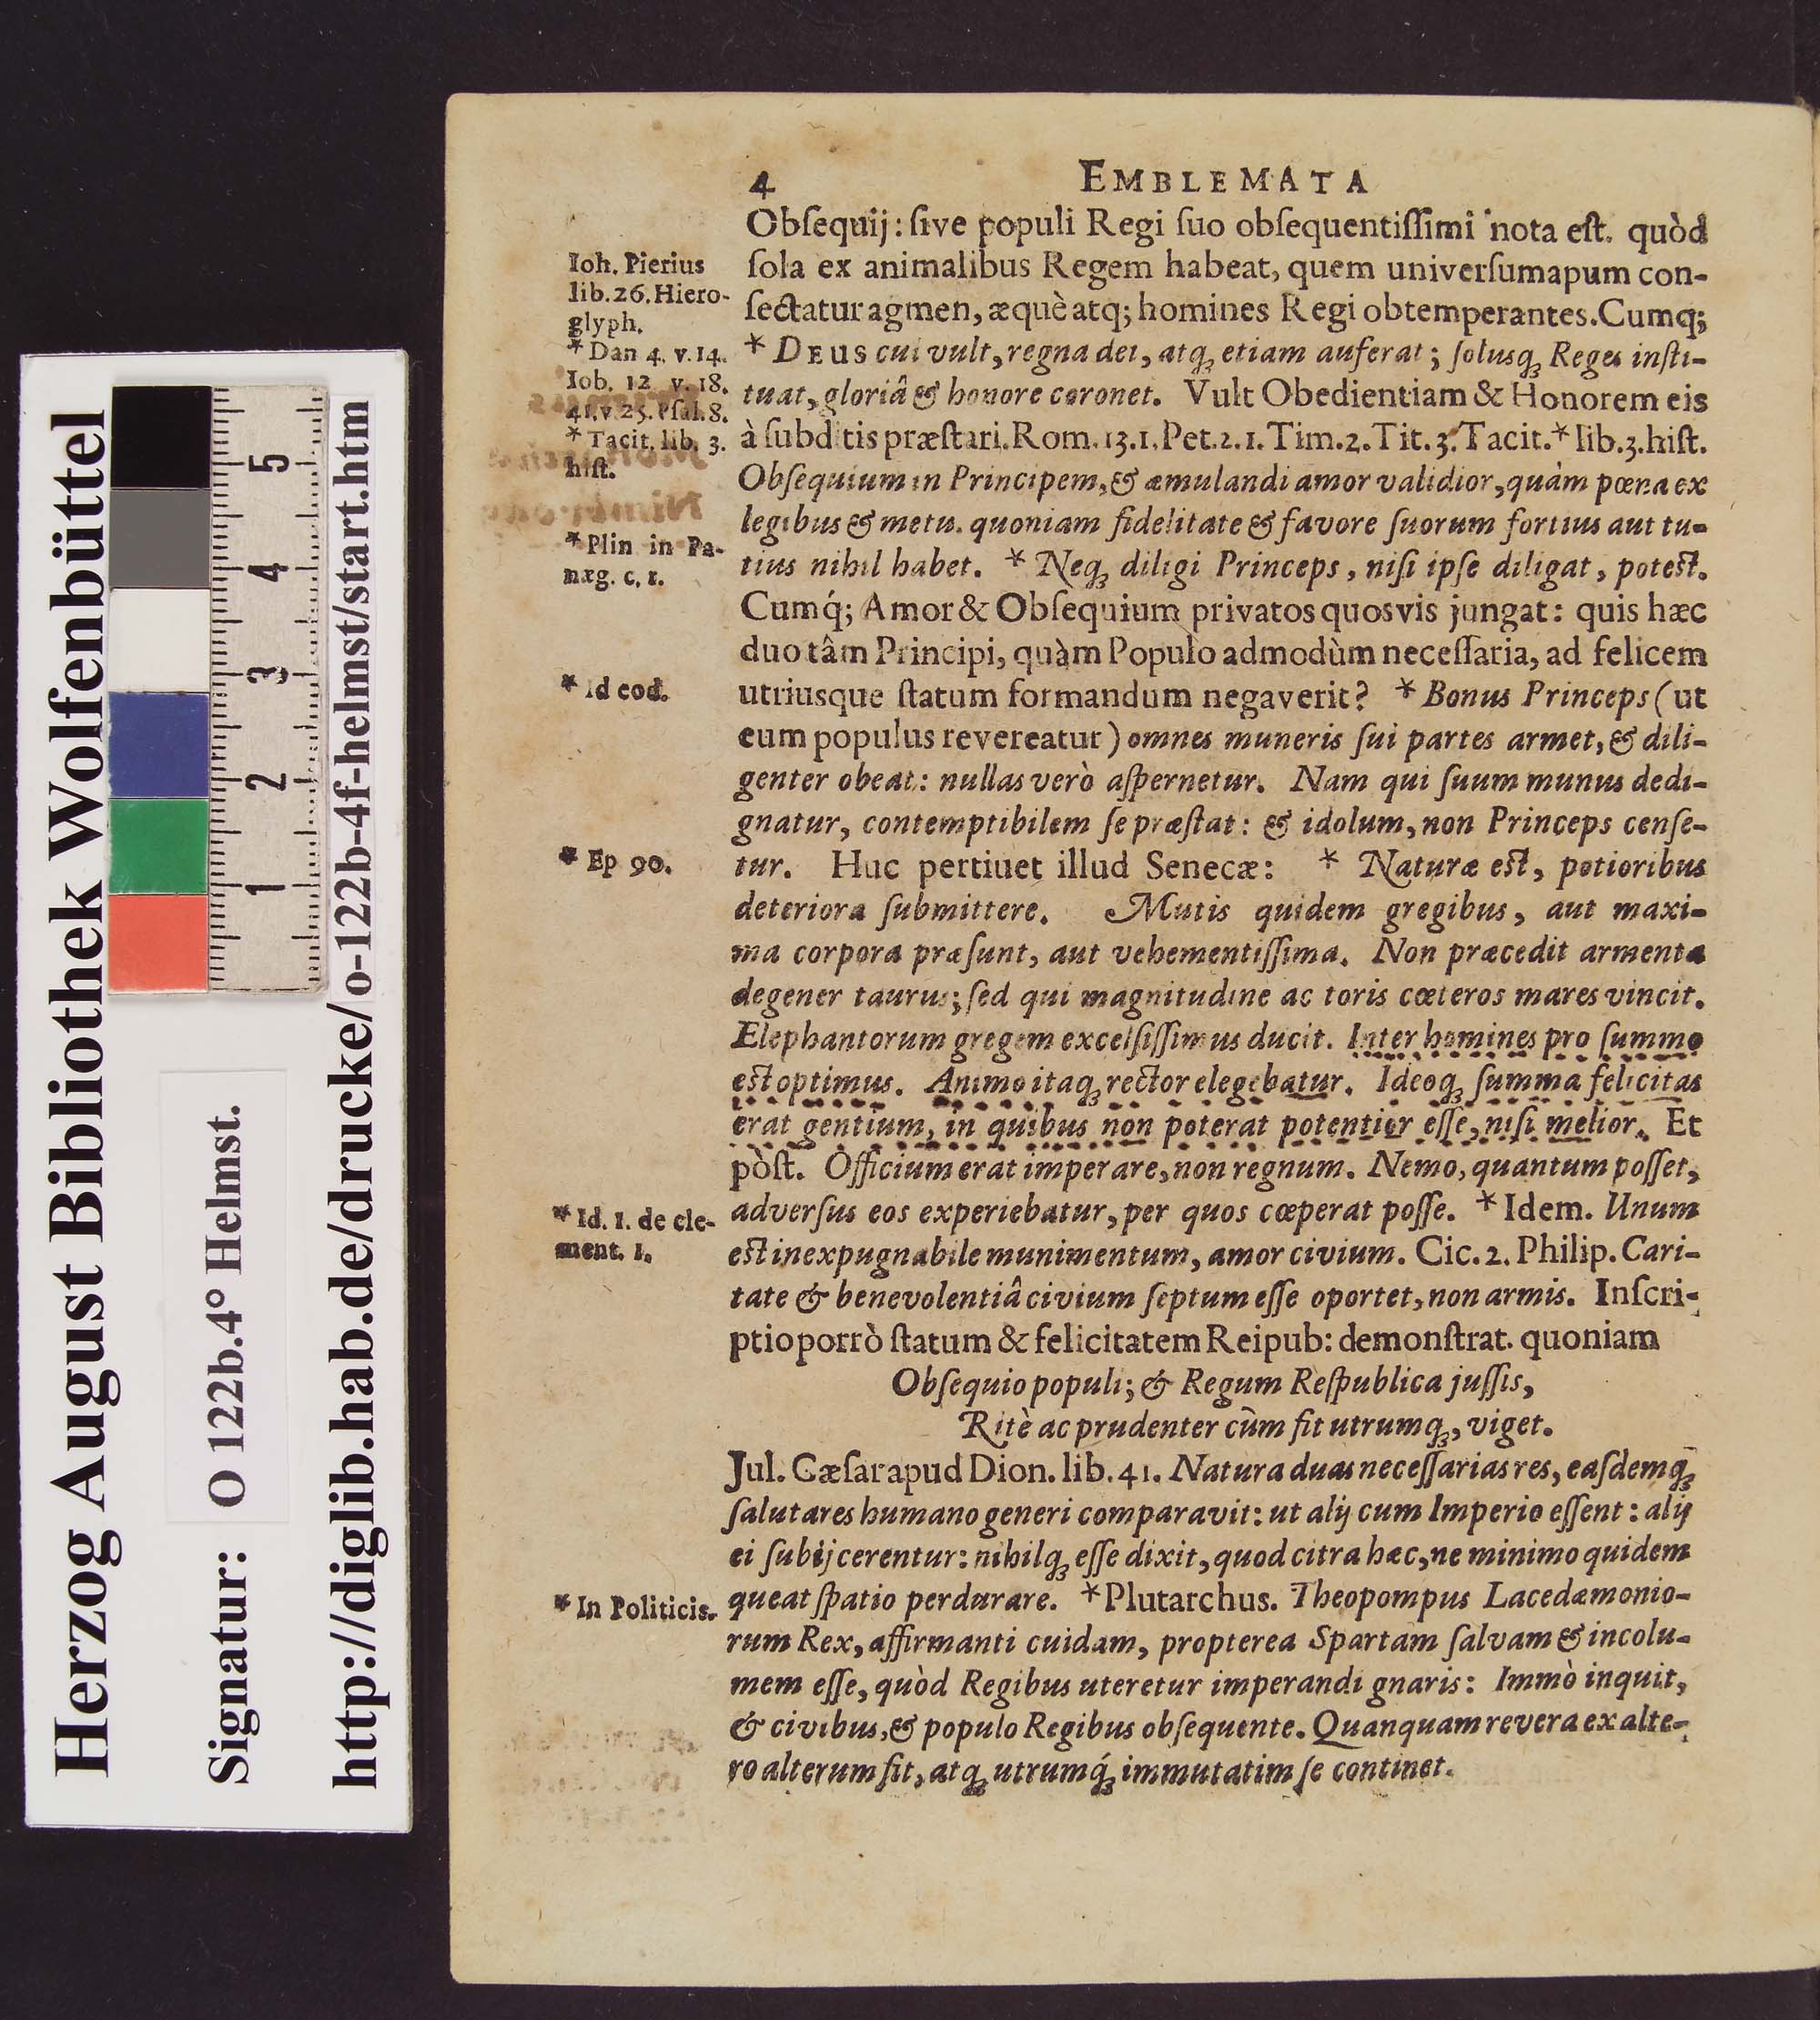 Herzog August Bibliothek Wolfenbüttel
Signatur: O 122b.4° Helmst.
http://diglib.hab.de/drucke/o-122b-4f-helmst/start.htm
5
4
3
2
1
4 EMBLEMATA
Obſequij: ſive populi Regi ſuo obſequentiſſimi nota eſt. quòd
ſola ex animalibus Regem habeat, quem univerſumapum con-
ſectatur agmen, æquè atq; homines Regi obtemperantes. Cumq;
* DEUS cui vult, regna det, atq; etiam auferat; ſolusq; Reges inſti-
tuat, gloriâ & honore coronet. Vult Obedientiam & Honorem eis
à ſubditis præſtari. Rom. 13. 1. Pet. 2. 1. Tim. 2. Tit. 3. Tacit. * lib. 3. hiſt.
Obſequium in Principem, & æmulandi amor validior, quàm pœna ex
legibus & metu. quoniam fidelitate & favore ſuorum fortius aut tu-
tius nihil habet. * Neq; diligi Princeps, niſi ipſe diligat, poteſt.
Cumq́; Amor & Obſequium privatos quosvis jungat: quis hæc
duo tâm Principi, quàm Populo admodùm neceſſaria, ad felicem
utriusque ſtatum formandum negaverit? * Bonus Princeps (ut
eum populus revereatur) omnes muneris ſui partes armet, & dili-
genter obeat: nullas verò aſpernetur. Nam qui ſuum munus dedi-
gnatur, contemptibilem ſe præſtat: & idolum, non Princeps cenſe-
tur. Huc pertiuet illud Senecæ: * Naturæ eſt, potioribus
deteriora ſubmittere. Mutis quidem gregibus, aut maxi-
ma corpora præſunt, aut vehementiſſima. Non præcedit armenta
degener taurus; ſed qui magnitudine ac toris cæteros mares vincit.
Elephantorum gregem excelſiſſimus ducit. Inter homines pro ſummo
eſt optimus. Animo itaq; rector elegebatur. Ideoq; ſumma felicitas
erat gentium, in quibus non poterat potentior eſſe, niſi melior. Et
pòſt. Officium erat imperare, non regnum. Nemo, quantum poſſet,
adverſus eos experiebatur, per quos cœperat poſſe. * Idem. Unum
eſt inexpugnabile munimentum, amor civium. Cic. 2. Philip. Cari-
tate & benevolentiâ civium ſeptum eſſe oportet, non armis. Inſcri-
ptio porrò ſtatum & felicitatem Reipub: demonſtrat. quoniam
Obſequio populi; & Regum Reſpublica juſſis,
Ritè ac prudenter cùm fit utrumq;, viget.
Jul. Cæſar apud Dion. lib. 41. Natura duas neceſſarias res, eaſdemq;
ſalutares humano generi comparavit: ut alij cum Imperio eſſent: alij
ei ſubijcerentur: nihilq; eſſe dixit, quod citra hæc, ne minimo quidem
queat ſpatio perdurare. * Plutarchus. Theopompus Lacedæmonio-
rum Rex, affirmanti cuidam, propterea Spartam ſalvam & incolu-
mem eſſe, quòd Regibus uteretur imperandi gnaris: Immò inquit,
& civibus, & populo Regibus obſequente. Quanquam revera ex alte-
ro alterum fit, atq; utrumq́; immutatim ſe continet.
Ioh. Pierius
lib. 26. Hiero-
glyph.
* Dan 4. v. 14.
Iob. 12 v. 18.
41. v. 25. Pſal. 8.
* Tacit. lib. 3.
hiſt.
* Plin in Pa-
næg. c. 1.
* Id eod.
* Ep 90.
* Id. 1. de cle-
ment. 1.
* In Politicis.